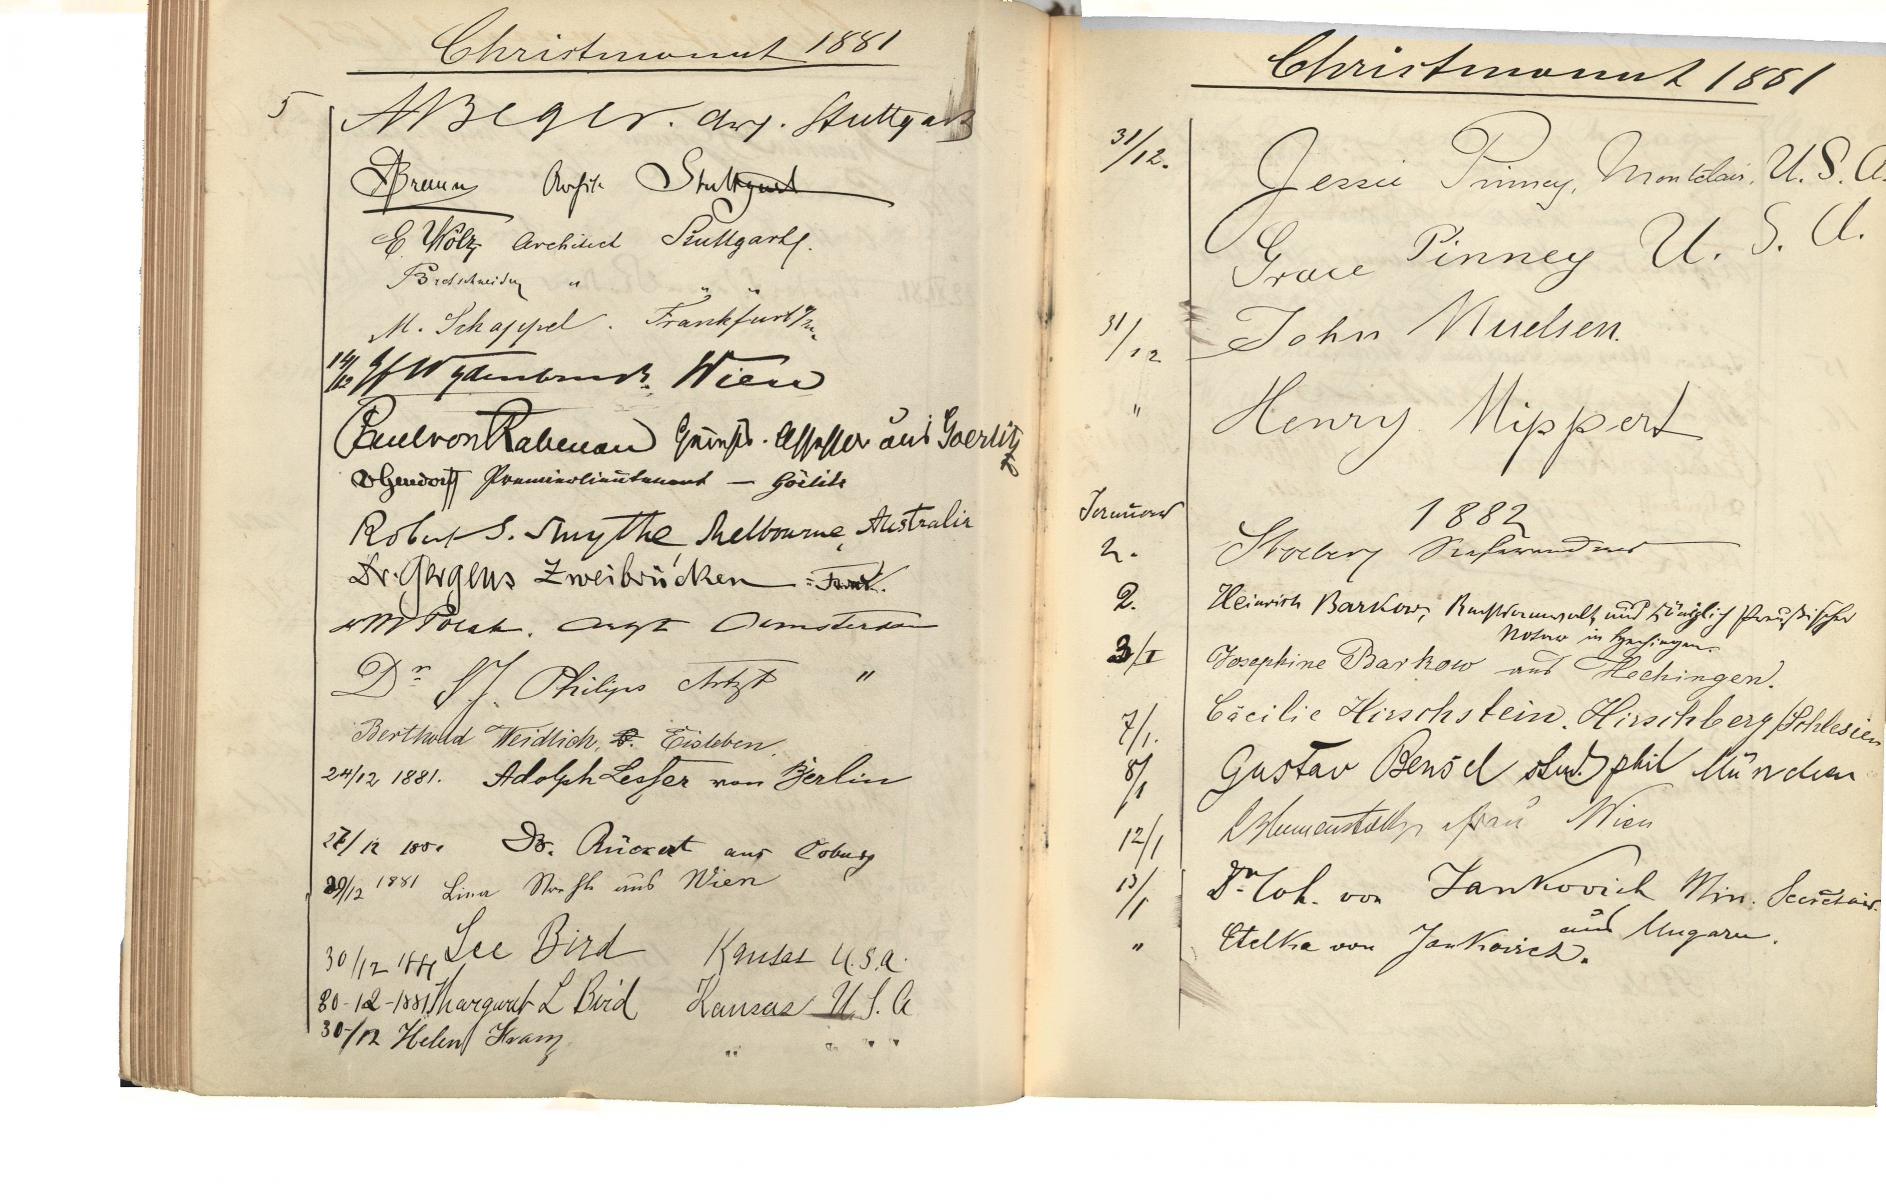 Christmonat 1881
5 A Beger. Arch. Stuttgart
Braun Archit. Stuttgart
E. Wölz Architect Stuttgart.
Bretschneider " " "
M. Schappel. Frankfurt a/M.
14/12 Wien
Paul von Rabenau aus Goerlitz
Premierlieutenant — Görlitz
Robert S. Smythe Melbourne, Australia
Dr. Gergens Zweibrücken
Arzt Amsterdam
Dr S J. Philips Artzt "
Berthold Weidlich, Eisleben.
24/12 1881. Adolph Lesser von Berlin
27/12 188. Dr. Rückert aus Coburg
29/12 1881 Lina aus Wien
30/12 1881 Lee Bird Kansas U.S.A.
30-12-1881 Margaret L Bird Kansas U.S.A
30-/12 Helen " " " "
Christmonat 1881
31/12. Jessie Pinney, Montclair, U.S.A.
Grace Pinney U.S.A.
31/12 John Nuelsen.
" Henry Nippert
1882
Januar
2. Referendar
2. Heinrich Barkow, Rechtsanwalt und Königlich Preußischer
Notar in Hechingen.
3/I Josephine Barkow aus Hechingen.
7/1. Cäcilie Hirschstein. Hirschberg/Schlesien
8/1 Gustav Bensel stud. phil München
12/1 Frau Wien
13/1 Dr Joh. von Jankovich Min. Secretair.
aus Ungarn.
" Etelka von Jankovich.